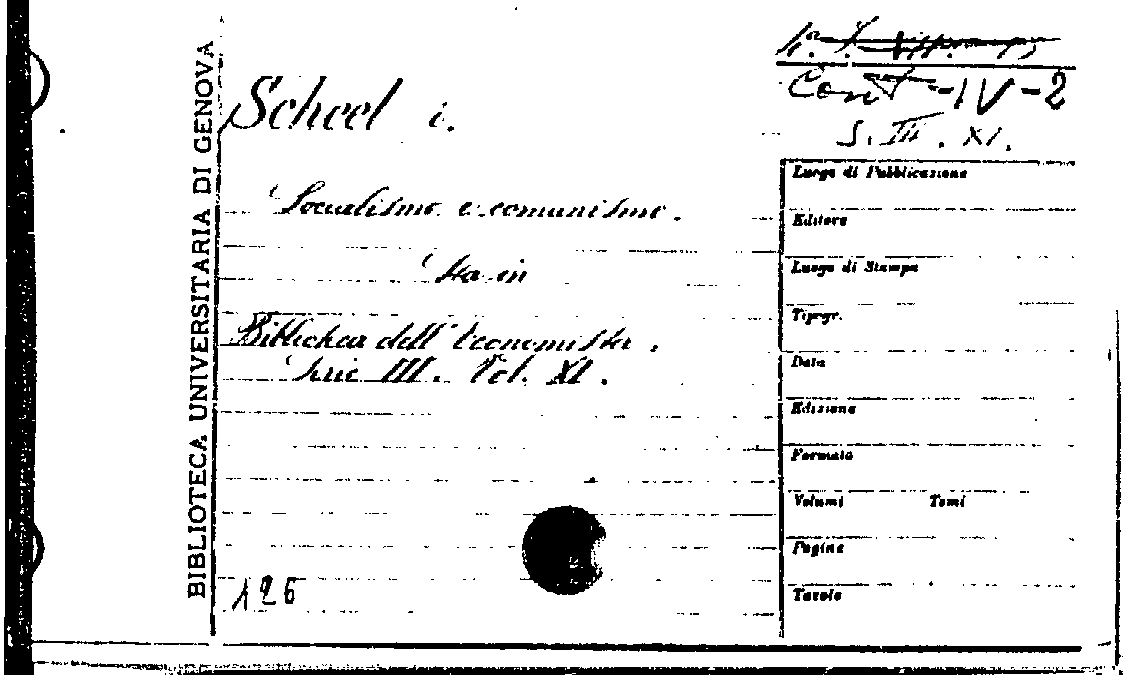 BIBLIOTECA UNIVERSITARIA DI GENOVA
Cont-IV-2
S. III. XI.
Scheel i.
Socialismo e comunismo.
Sta in
Biblioteca dell'Economista.
Serie III. Vol. XI.
126
Luogo di Pubblicazione
Editore
Luogo di Stampa
Tipogr.
Data
Edizione
Formato
Volumi Tomi
Pagine
Tavole